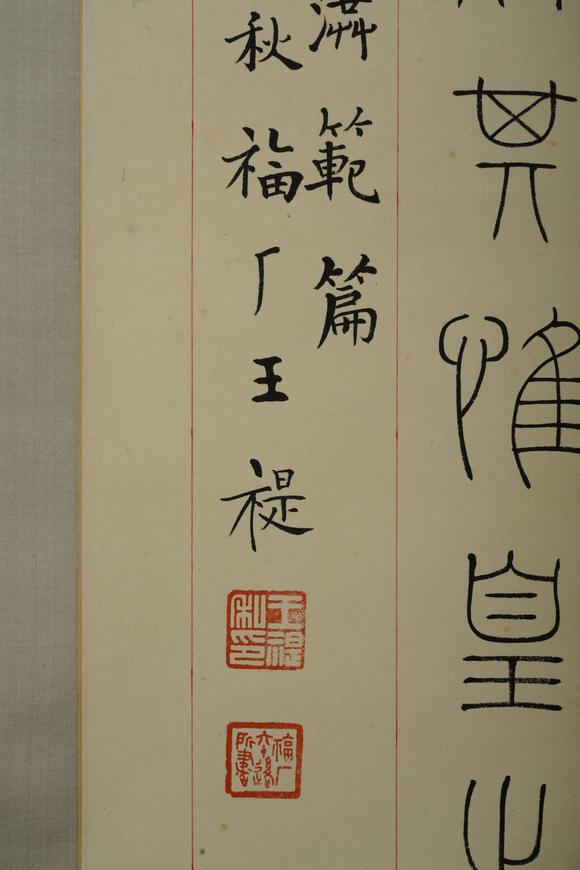 其惟皇之
範篇
秋福厂王禔
王禔私印
福厂六十後所書